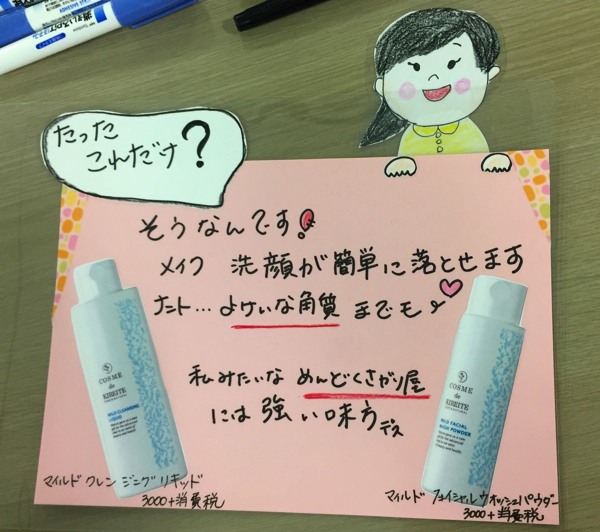 たった
これだけ?
そうなんです!
メイク 洗顔が簡単に落とせます
ナント…よけいな角質までモ
私みたいな めんどくさがり屋
には強い味方デス
COSME
de
KIREITE
MILD CLEANSING
LIQUID
COSME
de
KIREITE
MILD FACIAL
WASH POWDER
マイルド クレンジング リキッド
3000+消費税
マイルド フェイシャル ウォッシュパウダー
3000+消費税